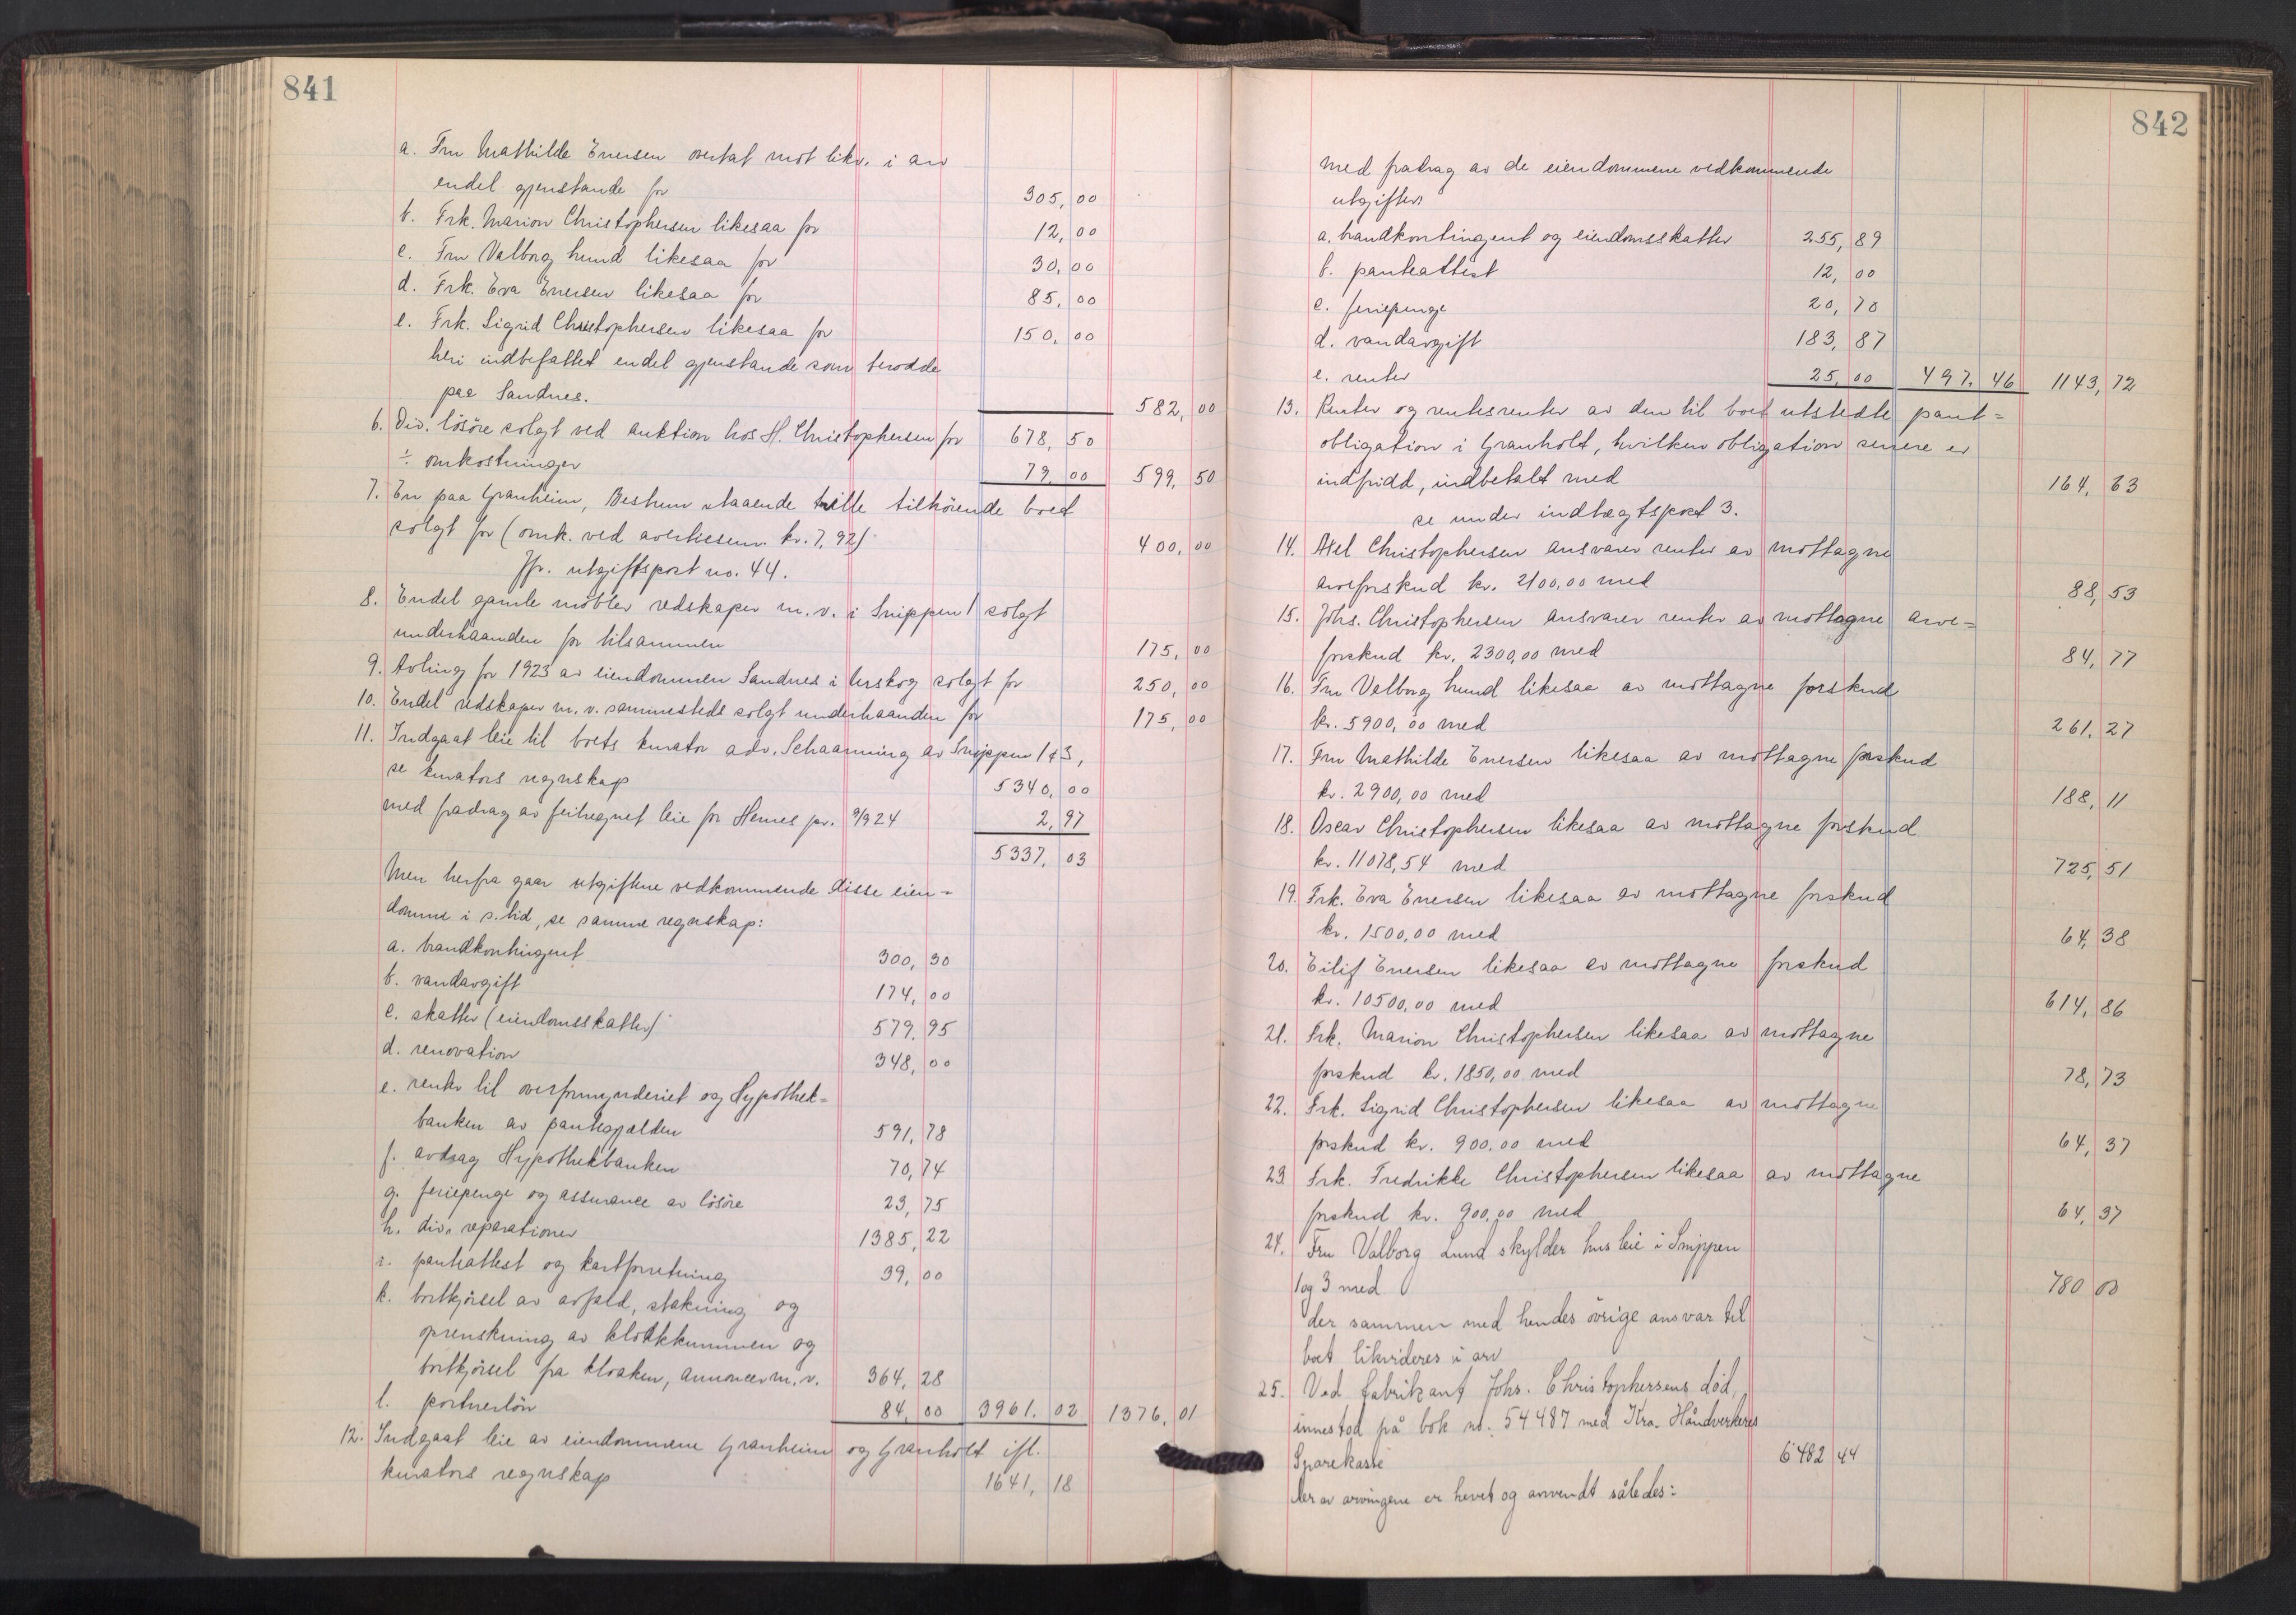 841
a. Fru Mathilde Enersen overtat mot likv. i arv
endel gjenstande for 305,00
b. Frk. Marion Christophersen likesaa for 12,00
c. Fru Valborg Lund likesaa for 30,00
d. Frk. Eva Enersen likesaa for 85,00
e. Frk. Sigrid Christophersen likesaa for 150,00
heri indbefattet endel gjenstande som berodde
paa Sandnes. 582,00
6. Div. lösöre solgt ved auktion hos H. Christophersen for 678,50
÷ omkostninger 79,00 599,50
7. En paa Granheim, Bestum staaende trille tilhörende boet
solgt for (omk. ved avertissem. kr. 7,92) 400,00
Jfr. utgiftspost no. 44.
8. Endel gamle möbler redskaper m.v. i Snippen 1 solgt
underhaanden for tilsammen 175,00
9. Avling for 1923 av eiendommen Sandnes i Urskog solgt for 250,00
10. Endel redskaper m.v. sammesteds solgt underhaanden for 175,00
11. Indgaat leie til boets kurator adv. Schaanning av Snippen 1 & 3,
se kurators regnskap 5340,00
med fradrag av feilregnet leie for Hernes pr. 9/9 24 2,97
5337,03
Men herfra gaar utgiftene vedkommende disse eien=
domme i s. tid, se samme regnskap:
a. brandkontingent 300,30
b. vandavgift 174,00
c. skatter (eiendomsskatter) 579,95
d. renovation 348,00
e. renter til overformynderiet og Hypothek=
banken av pantegjælden 591,78
f. avdrag Hypothekbanken 70,74
g. feiepenge og assurance av lösöre 23,75
h. div. reparationer 1385,22
i. panteattest og kartforretning 39,00
k. bortkjörsel av avfald, stakning og
oprenskning av kloakkummen og
bortkjörsel fra kloaken, annoncer m.v. 364,28
l. portnerlön 84,00 3961,02 1376,01
12. Indgaat leie av eiendommene Granheim og Granholt ifl.
kurators regnskap 1641,18
842
med fradrag av de eiendommene vedkommende
utgifter:
a. brandkontingent og eiendomsskatter 255,89
b. panteattest 12,00
c. feiepenge 20,70
d. vandavgift 183,87
e. renter 25,00 497,46 1143,72
13. Renter og rentesrenter av den til boet utstedte pant=
obligation i Granholt, hvilken obligation senere er
indfridd, indbetalt med 164,63
se under indtægtspost 3.
14. Axel Christophersen ansvarer renter av mottagne
arveforskud kr. 2100,00 med 88,53
15. Johs. Christophersen ansvarer renter av mottagne arve=
forskud kr. 2300,00 med 84,77
16. Fru Valborg Lund likesaa av mottagne forskud
kr. 5900,00 med 261,27
17. Fru Mathilde Enersen likesaa av mottagne forskud
kr. 2900,00 med 188,11
18. Oscar Christophersen likesaa av mottagne forskud
kr. 11078,54 med 725,51
19. Frk. Eva Enersen likesaa av mottagne forskud
kr. 1500,00 med 64,38
20. Eilif Enersen likesaa av mottagne forskud
kr. 10500,00 med 614,86
21. Frk. Marion Christophersen likesaa av mottagne
forskud kr. 1850,00 med 78,73
22. Frk. Sigrid Christophersen likesaa av mottagne
forskud kr. 900,00 med 64,37
23. Frk. Fredrikke Christophersen likesaa av mottagne
forskud kr. 900,00 med 64,37
24. Fru Valborg Lund skylder husleie i Snippen
1 og 3 med 780 00
der sammen med hendes övrige ansvar til
boet likvideres i arv
25. Ved fabrikant Johs. Christophersens död,
innestod på bok no. 54487 med Kra. Håndverkeres
Sparekasse 6482 44
der av arvingene er hevet og anvendt således: